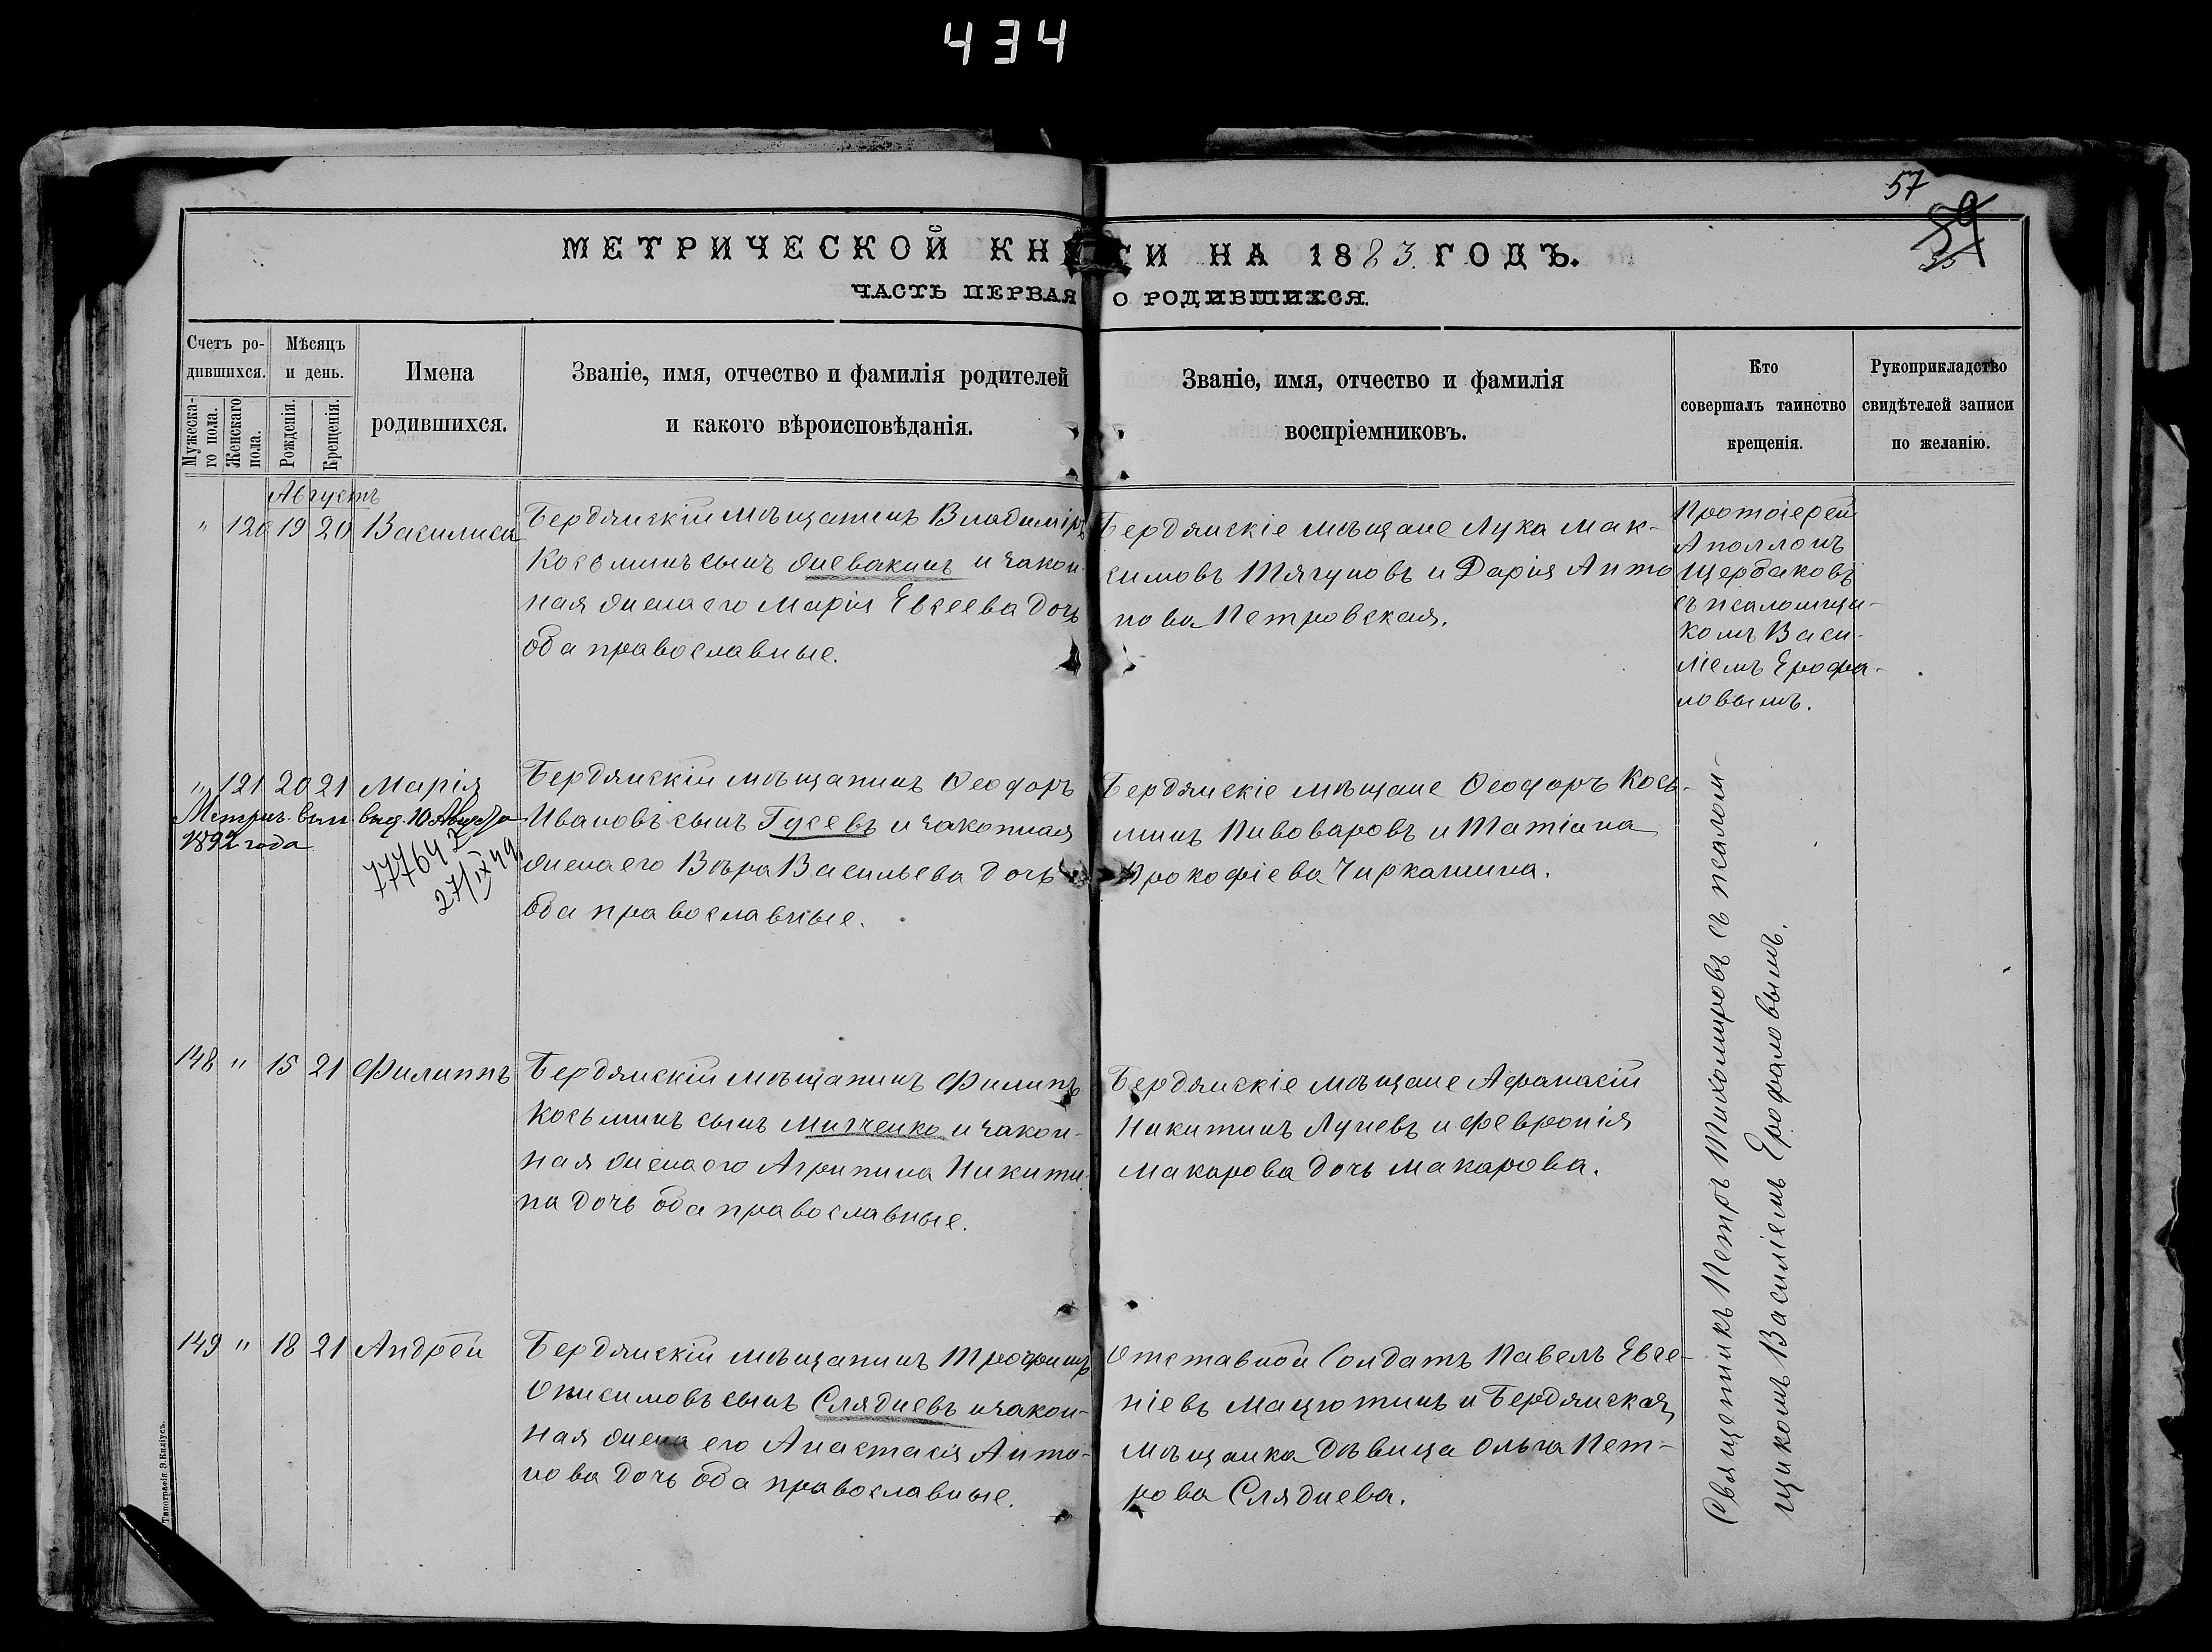 434
57
МЕТРИЧЕСКОЙ КНИГИ НА 1883 ГОДЪ.
ЧАСТЬ ПЕРВАЯ О РОДИВШИХСЯ.
Счетъ ро-
дившихся.
Мужеска-
го пола.
Женскаго
пола.
Мѣсяцъ
и день.
Рожденія.
Крещенія.
Имена
родившихся.
Званіе, имя, отчество и фамилія родителей
и какого вѣроисповѣданія.
Званіе, имя, отчество и фамилія
воспріемниковъ.
Кто
совершалъ таинство
крещенія.
Рукоприкладство
свидѣтелей записи
по желанію.
Августъ
" 120 19 20 Василиса
Бердянскій мѣщанинъ Владиміръ
Косьминъ сынъ Живакинъ и закон-
ная жена его Марія Евсеева дочь
оба православные.
Бердянскіе мѣщане Лука Мак-
симовъ Тягуновъ и Дарія Анто
нова Петровская.
Протоіерей
Аполлонъ
Щербаковъ
съ псаломщи-
комъ Васи-
ліемъ Ерофа-
ловымъ.
" 121 20 21 Марія
Метрич. вып. выд. 10 Августа
1892 года
777647
27/IX 49
Бердянскій мѣщанинъ Ѳеодоръ
Ивановъ сынъ Гусевъ и законная
жена его Вѣра Васильева дочь
оба православные.
Бердянскіе мѣщане Ѳеодоръ Кось-
минъ Пивоваровъ и Татіана
Прокофіева Чиркашина.
148 " 15 21 Филиппъ
Бердянскій мѣщанинъ Филипъ
Косьминъ сынъ Митченко и закон-
ная жена его Агрипина Никити-
на дочь оба православные.
Бердянскіе мѣщане Афанасій
Никитинъ Лучевъ и Февронія
Макарова дочь Макарова.
149 " 18 21 Андрей
Бердянскій мѣщанинъ Трофимъ
Онисимовъ сынъ Слядневъ и закон-
ная жена его Анастасія Анто-
нова дочь оба православные.
Отставной Солдатъ Павелъ Евге-
ніевъ Мацютинъ и Бердянская
мѣщанка дѣвица Ольга Пет-
рова Сляднева.
Священникъ Петръ Тихомировъ съ псалом-
щикомъ Василіемъ Ерофаловымъ.
Типографія Э.Киліусъ.